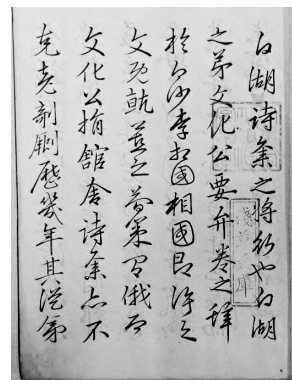 白湖詩集之將行也白湖
之弟文化公要弁卷之辞
於白沙李相國相國即許之
文既就置之箱篋間俄而
文化公捐館舍詩集亦不
克尭剞劂歷幾年其從弟